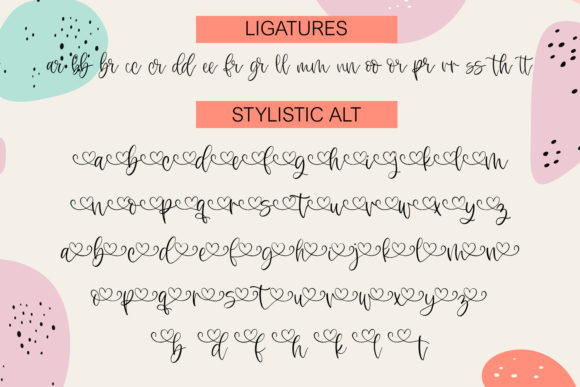 LIGATURES
ar bb br cc cr dd ee fr gr ll mm nn oo or pr vr ss th tt
STYLISTIC ALT
a b c d e f g h i j k l m
n o p q r s t u v w x y z
a b c d e f g h i j k l m n
o p q r s t u v w x y z
b d f h k l t